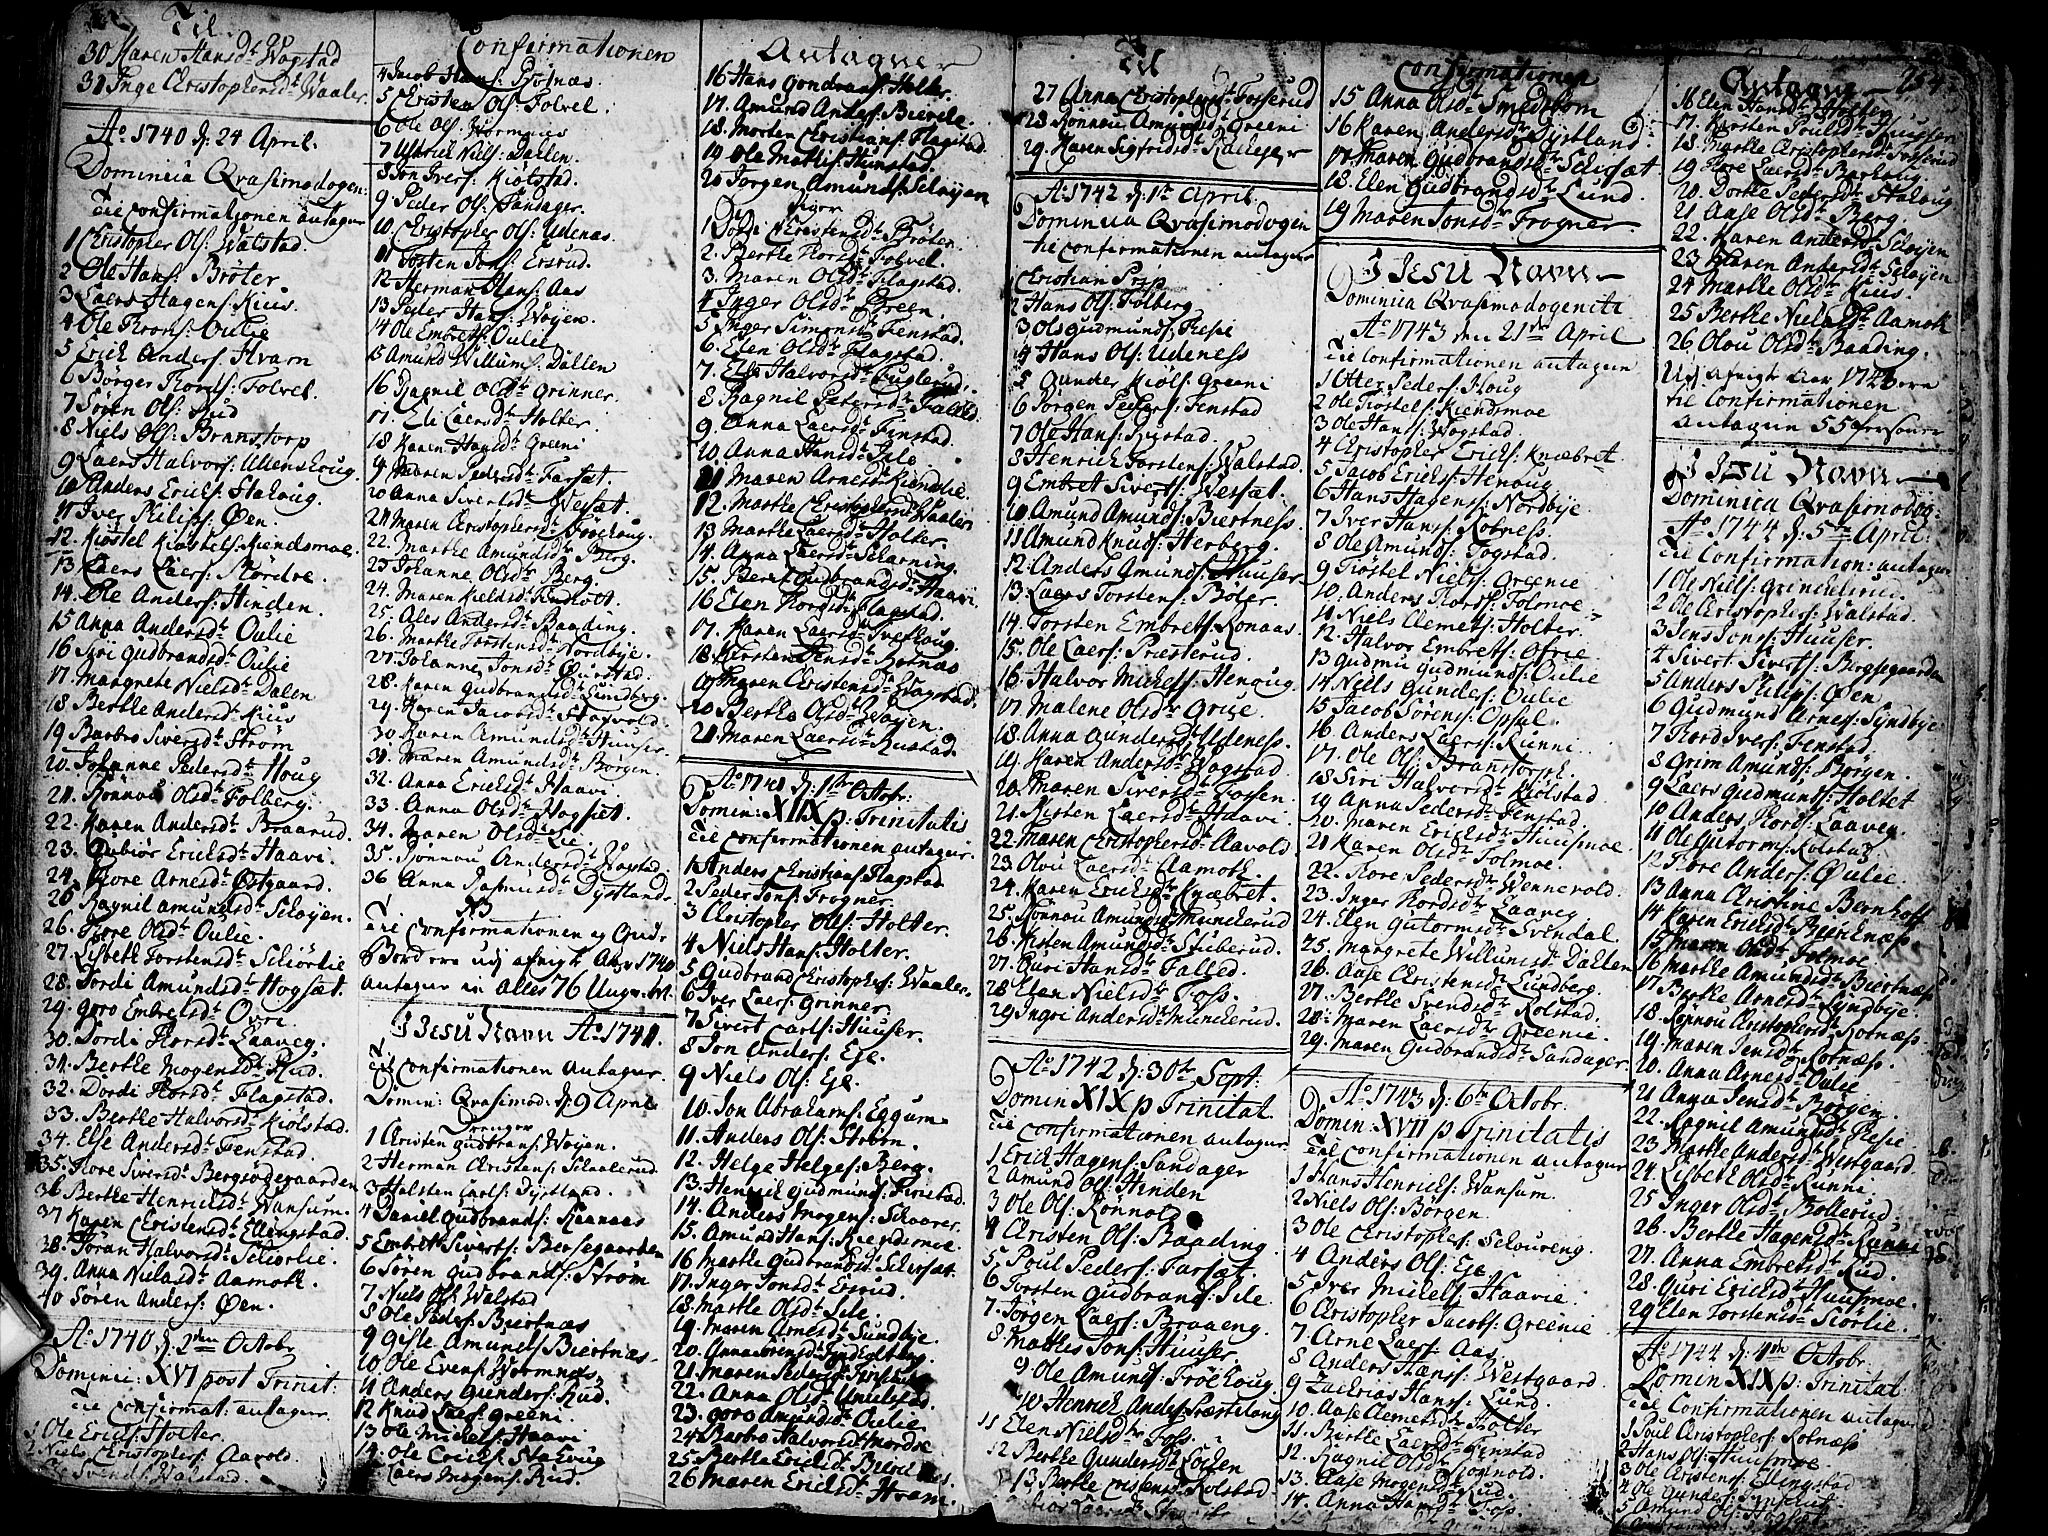 Til
30 Karen Hansdr Wogstad
31 Inge Christophersdr Waaler
Ao 1740 d: 24 April.
Dominica Qvasimodogen:
Til confirmationen antagen
1 Christopher Ols: Walstad.
2 Ole Hans: Brøter
3 Laers Hagens: Kius.
4 Ole Throns: Oulie
5 Erich Anders: Hvam
6 Børger Thords: Folvel.
7 Søren Ols: Rud
8 Niels Ols: Branstorp
9 Laers Halvors: Ullenshoug
10 Anders Ericks: Stahoug.
11 Iver Philips: Øen.
12. Kiøstel Kiøstels: Kiendsmoe.
13 Laers Laers: Mørdre.
14. Ole Anders: Hinden.
15 Anna Andersdr Oulie
16 Siri Gudbrandsdr Oulie
17. Margrete Nielsdr Dalen
18 Berthe Andersdr Kius
19 Barbro Siversdr Strøm
20. Johanne Pedersdr Houg
21. Rønnou Olsdr Folberg.
22. Karen Andersdr Braarud.
23. Gubiør Ericksdr Haavi.
24. Thore Arnesdr Østgaard.
25 Ragnil Amundsdr Seløyen.
26. Thore Olsdr Oulie.
27. Lisbeth Torstensdr Schiørlie
28. Tordi Amundsdr Hogsæt.
29. Goro Embretsdr Ovri.
30. Tordi Thorsdr Laaveg.
31. Berthe Mogensdr Rud.
32. Dordi Thorsdr Flagstad.
33. Berthe Halvorsdr Kiølstad.
34. Else Andersdr Fenstad.
35. Thore Siversdr Bergsøgegaarden
36 Berthe Henrichsdr Wansum.
37 Karen Christensdr Ellingstad
38. Jøran Halvorsdr Schiørlie.
39. Anna Nielsdr Aamoth.
40 Søren Anders: Øen.
Ao 1740 d: 2den Octobr
Dominic: XVI post Trinit:
Til confirmat: antagen
1 Ole Ericks: Holter.
2. Niels Christophers: Aavold.
Svends: Walstad.
Confirmationen
4 Jacob Hans: Bøtnæs.
5 Christen Ols: Folvel.
6 Ole Ols: Wormnes
7 Uhlrich Niels: Dallen.
8 Jon Ivers: Kiølstad.
9 Peder Ols: Sandager.
10. Christopher Ols: Udenæs.
11 Torsten Jons: Ersrud.
12 Herman Hans: Aas
13 Peder Hans: Woyen.
14 Ole Embrets: Oulie.
15 Amund Willums: Dallen
16 Ragnil Olsdr Grinner.
17. Eli Laersdr Holter.
18 Karen Hansdr Greeni
19. Maren Pedersdr Farsæt.
20 Anna Sivertsdr Wesæt.
21 Maren Christophersdr Frøshoug.
22. Marthe Amundsdr Berg.
23 Johanne Olsdr Berg.
24. Maren Keldsdr Findholt.
25. Ales Andersdr Baading.
26. Marthe Torstensdr Nordbye.
27. Johanne Jonsdr Ourstad.
28. Karen Gudbrandsdr Lundberg.
29. Karen Jacobsdr Skogvold.
30 Karen Amundsdr Huuser.
31. Maren Amundsdr Børgen.
32. Anna Ericksdr Haavi.
33. Anna Olsdr Hogsæt.
34. Maren Olsdr Lie.
35. Rønnou Andersdr Wogstad.
36 Anna Rasmusdr Dystland.
NB
Til Confirmationen og Guds
Bord ere udj afvigt Aar 1740
antagen in alles 76 Unge
I Jesu Navn Ao 1741.
Til Confirmationen Antagen.
Domin: Qvasimod: d: 9 April
Drenger
1 Christen Gudbrans: Woyen.
2 Herman Christens: Schaalerud
3 Halsten Carls: Dystland.
4 Daniel Gudbrands: Kaanaas
5 Embret Siverts: Bersegaarden
6 Søren Gudbrands: Strøm
7. Niels Ols Walstad
8 Ole Peders: Biertnæs
9 Gisle Amunds: Biertnæs.
10. Ole Evens: Wormnæs.
11 Anders Gunders: Rud.
12 Knud Laers: Greeni.
13 Ole Michels: Haavi
14. Ole Ericks: Stahoug
Laers Mogens: Rud.
Antagen
16 Hans Gondrans: Holter.
17. Amund Anders: Bierche.
18. Morten Christians: Flagstad.
19 Ole Mathis: Hunstad.
20 Jørgen Amunds: Seløyen
Piger
1 Dordi Christensdr Brøter.
2. Berthe Thorsdr Folvel.
3. Maren Olsdr Flagstad.
4 Inger Olsdr Green.
5 Inger Simensdr Fenstad.
6. Elen Olsdr Flagstad.
7. Else Halvorsdr Fuglerud.
8 Ragnil Petersdr
9. Anna Laersdr Finstad.
10. Anna Hansdr Sele.
11 Maren Arnesdr Kiendslie.
12. Marthe Christophersdr Waaler
13 Marthe Laersdr Holter.
14. Anna Laersdr Scharning.
15. Beret Gudbrandsdr Haavi.
16 Elen Thordsdr Flagstad.
17. Karen Laersdr Tvethoug.
18. Kirsten Jensdr Botnæs
19 Maren Christensdr Wagstad.
20 Berthe Olsdr Woyen.
21. Maren Laersdr Rustad.
Ao 1741 d: 1ste Octobr:
Domin: XIIX p: Trinitatis
Til confirmationen antagen.
1 Anders Christians: Flagstad
2 Peder Jons: Frogner.
3 Christopher Ols: Holter.
4 Niels Hans: Holter.
5 Gudbrand Christophers: Waaler.
6 Iver Laers: Grinner
7 Sivert Carls: Huuser.
8 Jon Anders: Eje.
9 Niels Ols: Eje.
10. Jon Abrahams: Eggum
11. Anders Ols: Strøm.
12. Helge Helges: Berg.
13. Henrich Gudmund: Finstad.
14. Anders Mogens: Schoorer.
15. Amund Hans: Kiendsmoe.
16 Marthe Gudbrandsdr Schersæt.
17. Inger Jonsdr Ersrud.
18. Marthe Olsdr Sele.
19. Maren Arnesdr Sundbye.
20. Anna Sorensdr Findholt
21. Maren Pedersdr Finstad
22. Anna Olsdr
23. Goro Amundsdr Oulie
24 Barbra Halvorsdr Mordre
25 Berthe Ericksdr
26 Maren Ericksdr Hvam.
Til
27 Anna Christophersdr Fosserud
28 Rønnou Amundsdr Greeni
29. Karen Sigfridsdr
Ao 1742 d: 1ste April.
Dominica Qvasimodogen
til confirmationen antagen
Christian Prip
2 Hans Ols: Folberg
3 Ols Gudmunds: Resie
4 Hans Ols: Udeness
5 Gunder Kiøls: Greeni
6 Jørgen Peders: Fenstad
7 Ole Hans: Rustad.
8 Henrich Torstens: Walstad.
9 Embret Siverts: Wersæt.
10 Amund Amunds: Biertness.
11 Amund Knuds: Herberg.
12. Anders Amunds: Huuser
13. Laers Torstens: Boler.
14. Torsten Embrets: Ronaas.
15. Ole Laers: Priesterud.
16. Halvor Michels: Henoug.
17 Malene Olsdr Grise.
18. Anna Gundersdr Udeness.
19. Karen Andersdr Wogstad
20. Maren Siversdr Fossen.
21. Kirsten Laersdr Haavi.
22. Maren Christophersdr Aavold
23 Olou Laersdr Aamoth.
24. Karen Ericksdr Knæbret.
25. Rønnou Amundsdr Munckerud
26. Kisten Amundsdr Stuberud.
27. Guri Hansdr Falled.
28 Elen Nielsdr Foss.
29 Ingri Andersdr Munckerud.
Ao 1742 d: 30te Sept:
Domin XIX p Trinitat.
Til confirmationen antagen
1 Erich Hagens: Sandager
2 Amund Ols: Hinden
3 Ole Ols: Rønnold
4 Christen Ols: Baading.
5. Poul Peders: Farsæt.
6 Torsten Gudbrans: Sele.
7. Jørgen Laers: Braaeng.
8. Mathis Jons: Huuser
9 Ole Amunds: Frøshoug.
10 Henrich Anders: Præstelong
11 Elen Nielsdr Foss.
12 Berthe Gundersdr Løcken
13. Berthe Christensdr Rolstad
Confirmationen
15 Anna Olsdr Smedsbom
16 Karen Andersdr Dystland.
17 Maren Gudbrandsdr Schersæt.
18. Elen Gudbrandsdr Lund.
19 Maren Jonsdr Frogner.
I Jesu Navn
Dominica Qvasimodogeniti
Ao 1743 den 21de April
Til Confirmationen antagen
1 Otter Peders: Houg
2 Ole Kiøstels: Kiendsmoe
3 Ole Hans: Wogstad
4 Christopher Ericks: Knæbret.
5 Jacob Ericks: Henoug
6 Hans Hagens: Nordbye
7 Iver Hans: Rotness.
8 Ole Amunds: Fogstad.
9 Kiøstel Niels: Greenie
10. Anders Thords: Folmoe
11 Niels Clemets: Holter.
12. Halvor Embrets: Ofrie.
13 Gudmu Gudmunds: Oulie
14 Niels Gunders: Oulie
15 Jacob Sørens: Opsal.
16. Anders Laers: Runni.
17. Ole Ols: Branstorph.
18 Siri Halversdr Kiølstad
19 Anna Pedersdr Fenstad.
20. Maren Ericksdr Huusmoe.
21 Karen Olsdr Folmoe.
22. Thore Pedersdr Wennevold.
23. Inger Thordsdr Laaveg.
24. Elen Gutormsdr Svendal.
25. Margrete Willumsdr Dallen
26. Aase Christensdr Lundberg.
27. Berthe Svendsdr Rolstad.
28. Maren Laersdr Greenie.
29. Maren Gudbrandsdr Sandager
Ao 1743 d: 6te Octobr.
Domin: XVII p Trinitatis
Til Confirmationen antagen
1 Hans Henrichs: Wansum.
2 Niels Ols: Børgen.
3 Ole Christophers: Seloureng.
4 Anders Ols: Eje
5 Iver Michels: Haavie.
6 Christopher Jacobs: Greenie
7. Arne Laers: Aas
8 Anders Hans: Westgaard.
9 Zacharias Hans: Lund.
10. Aase Clemetsdr Holter
11. Berthe Laersdr Fenstad
12. Ragnil Olsdr Rønnold.
13. Aase Mogensdr Rud.
14. Anna Hansdr Foss.
Antagen 254.
16 Elen Hansdr Holter
17. Kirsten Poulsdr Huuser
18. Marthe Christophersdr Fosserud
19 Thore Laersdr Berhoug.
20. Dorthe Pedersdr Stahoug
21 Aase Olsdr Berg.
22. Karen Andersdr Seløyen
23 Maren Andersdr Seløyen
24 Marthe Olsdr Kius.
25 Berthe Nielsdr Aamoth
26. Olou Olsdr Baading.
Udj afvigte Aar 1743 ere
til Confirmationen
antagen 55 Personer
I Jesu Navn
Dominica Qvasimodog:
Ao 1744 d: 5te April.
Til Confirmation: antagen
1 Ole Niels: Grinchelrud.
2 Ole Christophers: Walstad.
3 Jens Jons: Huuser.
4 Sivert Siverts: Bergsegaarden
5 Anders Philips: Øen
6 Gudmund Arnes: Syndbye
7 Thord Ivers: Fenstad.
8 Grim Amunds: Børgen.
9 Laers Gudmunds: Holtet
10 Anders Thords: Laaveg.
11 Ole Gutorms: Rolstad
12 Thore Anders: Oulie.
13 Anna Christine Bernhoft
14 Karen Ericksdr Beencknæss
15 Maren Olsdr Folmoe
16 Marthe Amundsdr Biertnæss
17 Berthe Arnesdr Syndbye.
18. Rønnou Christophersdr Rotnæss.
19. Maren Jensdr Rotnæss.
20. Anna Arnesdr Oulie
21 Anna Jensdr Børgen.
22. Ragnil Amundsdr Resie
23 Marthe Andersdr Westgaard.
24. Lisbeth Olsdr Runni
25 Inger Olsdr Bollerud
26. Berthe Hagensdr Runni
27. Anna Embretsdr Rud.
28. Guri Ericksdr Huusmoe.
29 Elen Torstensdr Skiørlie.
Ao 1744 d: 4de Octobr
Domin XIX p: Trinitat.
Til Confirmationen antagen
1 Poul Christophers: Rotnæss
2 Hans Ols: Huusmoe
3 Ole Christens: Ellingstad
4 Ole Gunders:
5 Amund Ols: Hogsæt